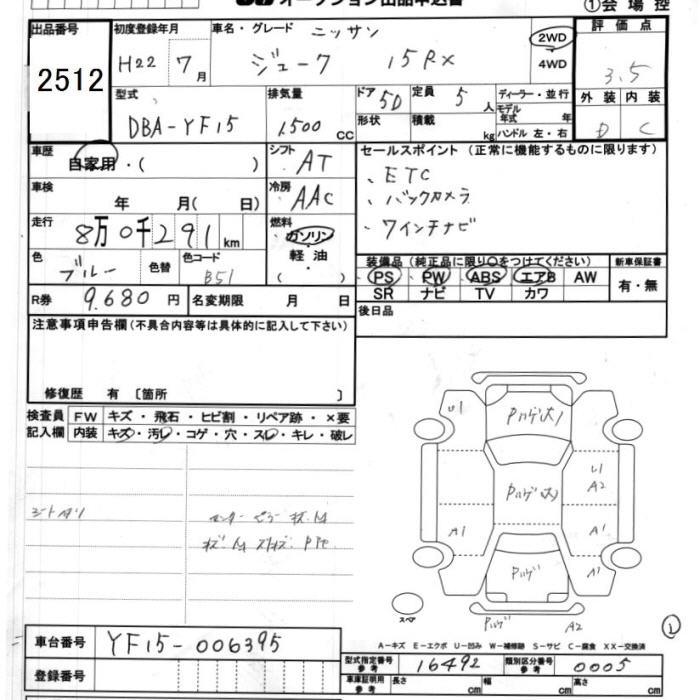 オークション出品申込書
①会場控
出品番号
2512
初度登録年月
H22 7月
車名・グレード
ニッサン
ジューク 15RX
2WD
4WD
評価点
3.5
型式
DBA-YF15
排気量
1,500 CC
ドア 5D
形状
定員 5人
積載 kg
ディーラー・並行
モデル年式 年
ハンドル 左・右
外装 内装
D C
車歴
自家用・( )
シフト AT
セールスポイント (正常に機能するものに限ります)
、ETC
、バックカメラ
、7インチナビ
車検
年 月( 日)
冷房 AAC
走行
8万0千291km
燃料
ガソリン
軽油
( )
色 ブルー 色替
色コード B51
装備品 (純正品に限り○をつけてください)
PS PW ABS エアB AW
SR ナビ TV カワ
新車保証書
有・無
R券 9,680円 名変期限 月 日
後日品
注意事項申告欄(不具合内容等は具体的に記入して下さい)
修復歴 有 〔箇所 〕
検査員記入欄
FW キズ・飛石・ヒビ割・リペア跡・×要
内装 キズ・汚レ・コゲ・穴・スレ・キレ・破レ
U1
Pハゲ(大)
U1
A2
Pハゲ(大)
A1
A1
Pハゲ
A1
スペア
Pハゲ A2
A-キズ E-エクボ U-凹み W-補修跡 S-サビ C-腐食 XX-交換済
車台番号 YF15-006395
型式指定番号 参考 16492
類別区分番号 参考 0005
登録番号
車庫証明用 参考 長さ cm 幅 cm 高さ cm